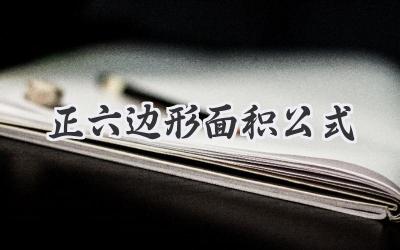 正六边形面积公式